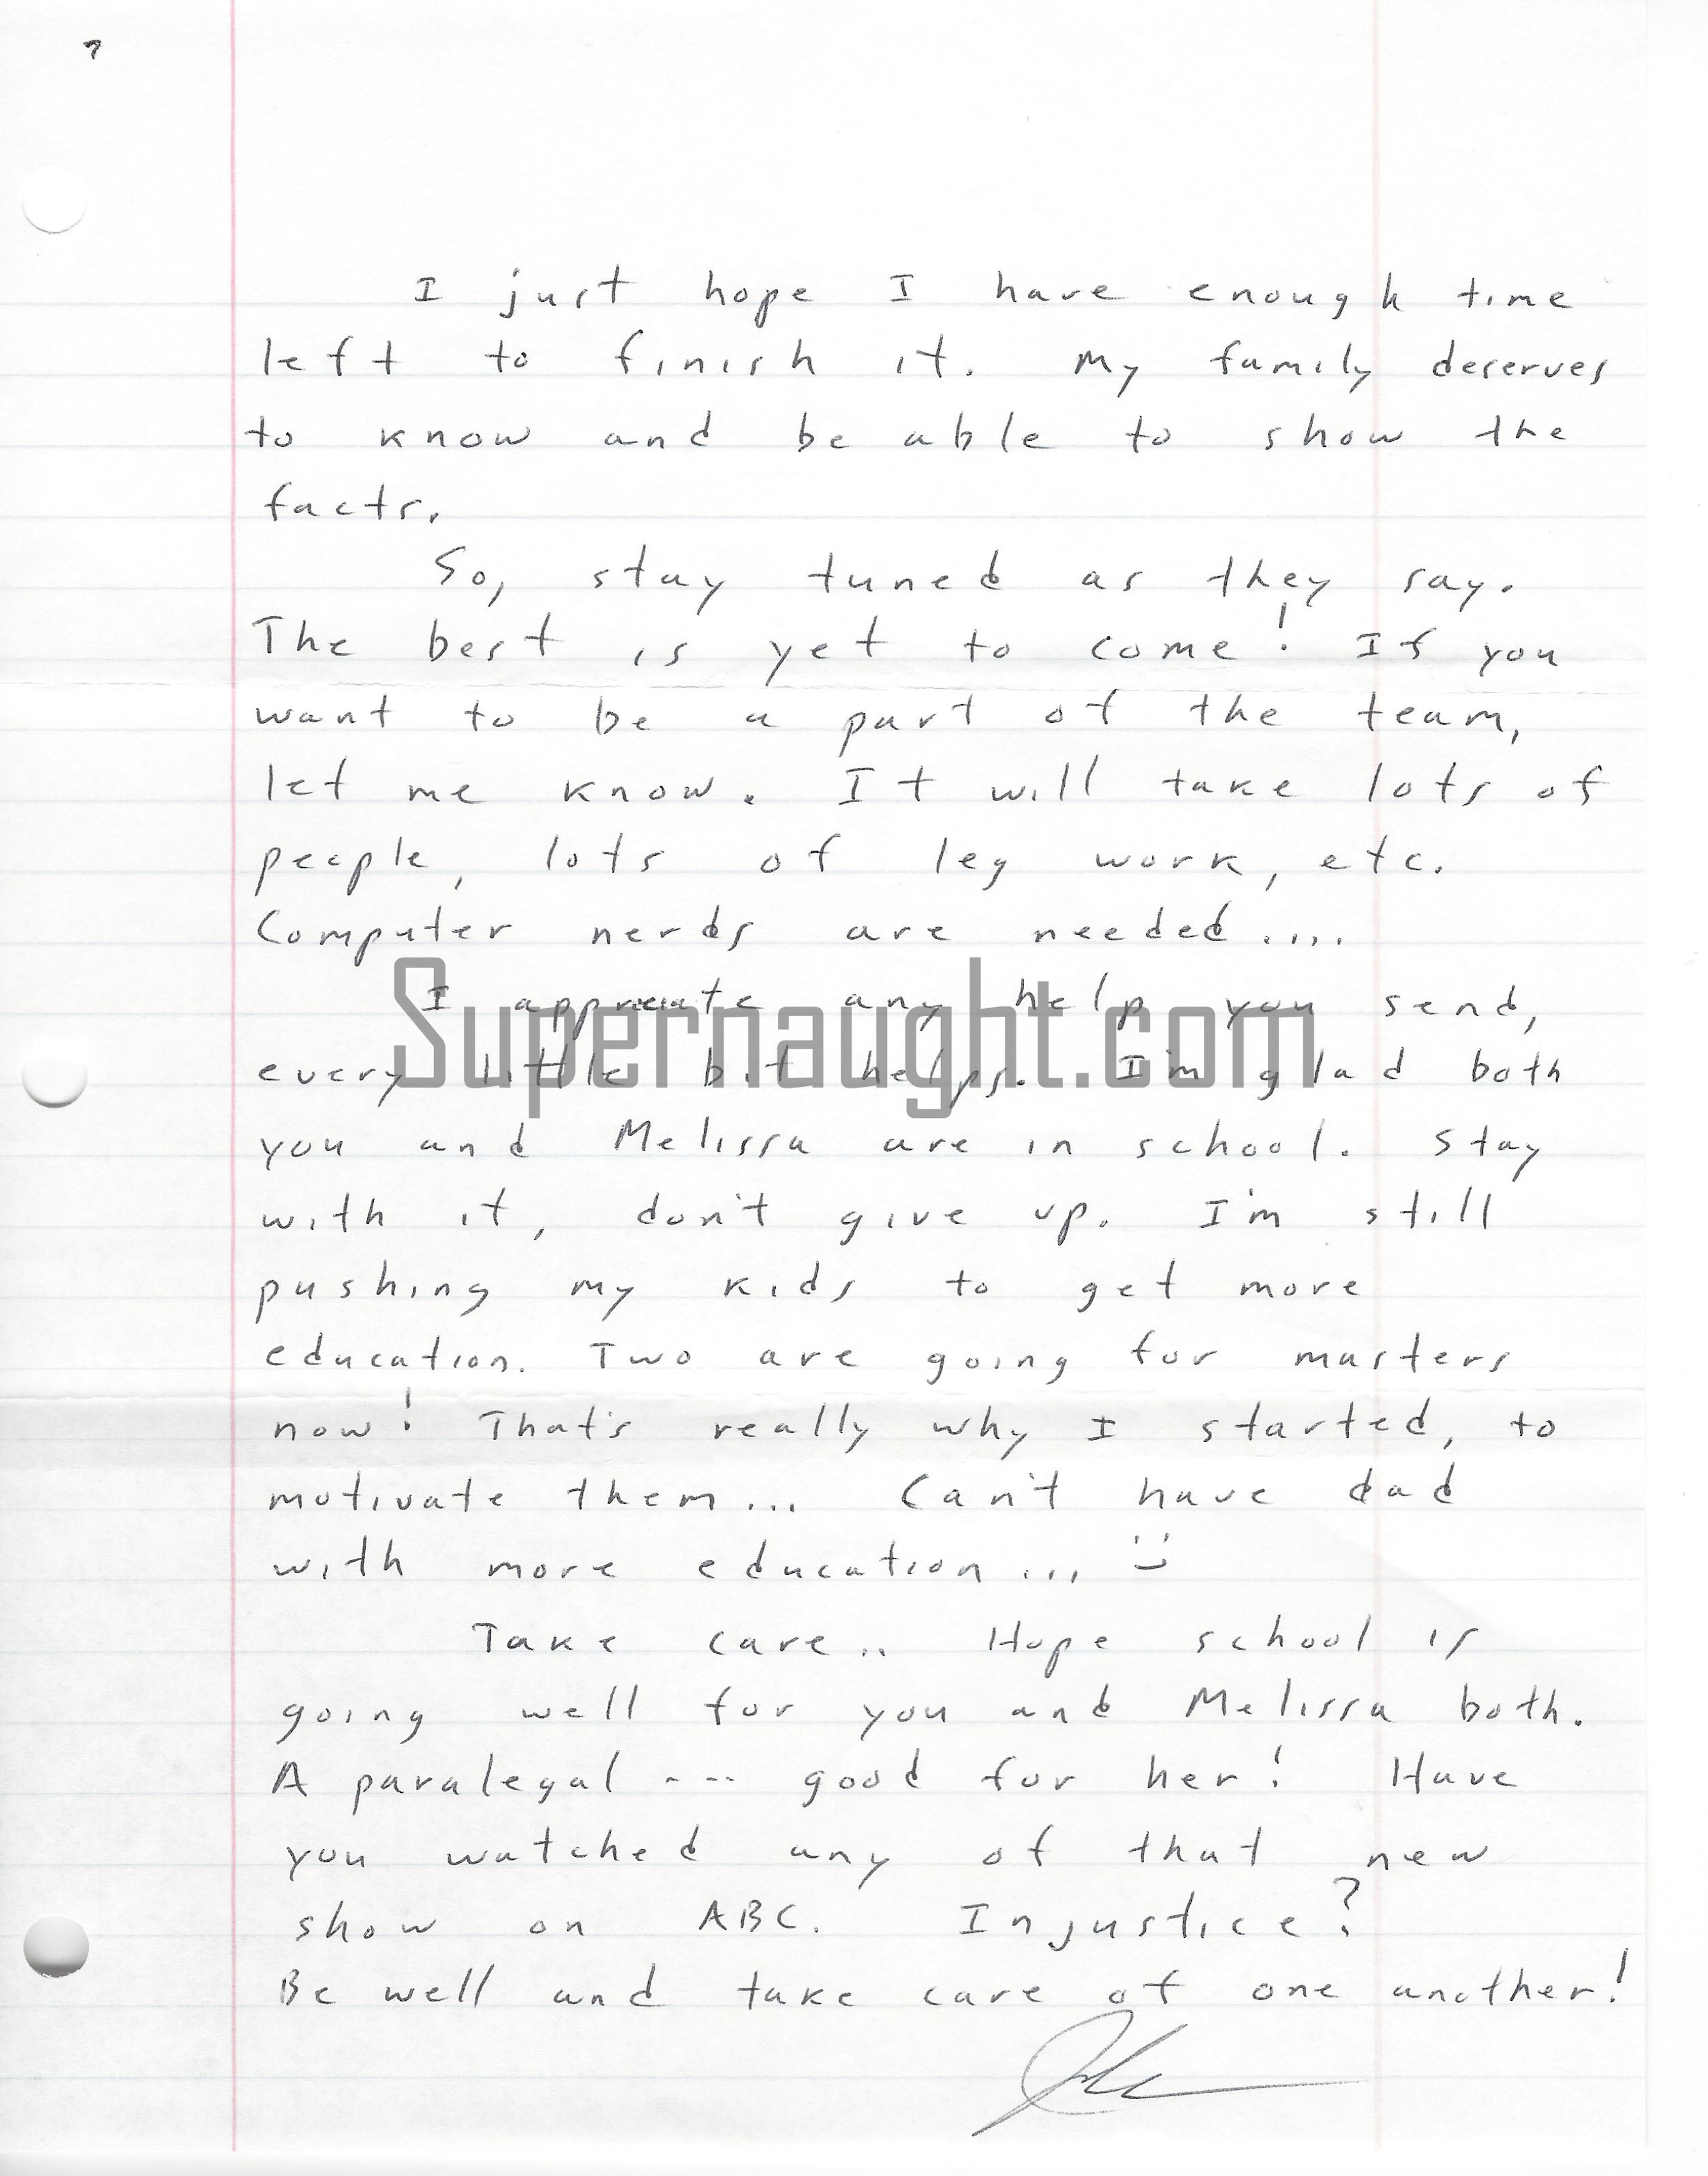 7
I just hope I have enough time
left to finish it. My family deserves
to know and be able to show the
facts.
So, stay tuned as they say.
The best is yet to come! If you
want to be a part of the team,
let me know. It will take lots of
people, lots of leg work, etc.
Computer nerds are needed....
I any help you send,
every little bit helps. I'm glad both
Supernaught.com
you and Melissa are in school. Stay
with it, don't give up. I'm still
pushing my kids to get more
education. Two are going for masters
now! That's really why I started, to
motivate them... Can't have dad
with more education... :)
Take care.. Hope school is
going well for you and Melissa both.
A paralegal --- good for her! Have
you watched any of that new
show on ABC. Injustice?
Be well and take care of one another!